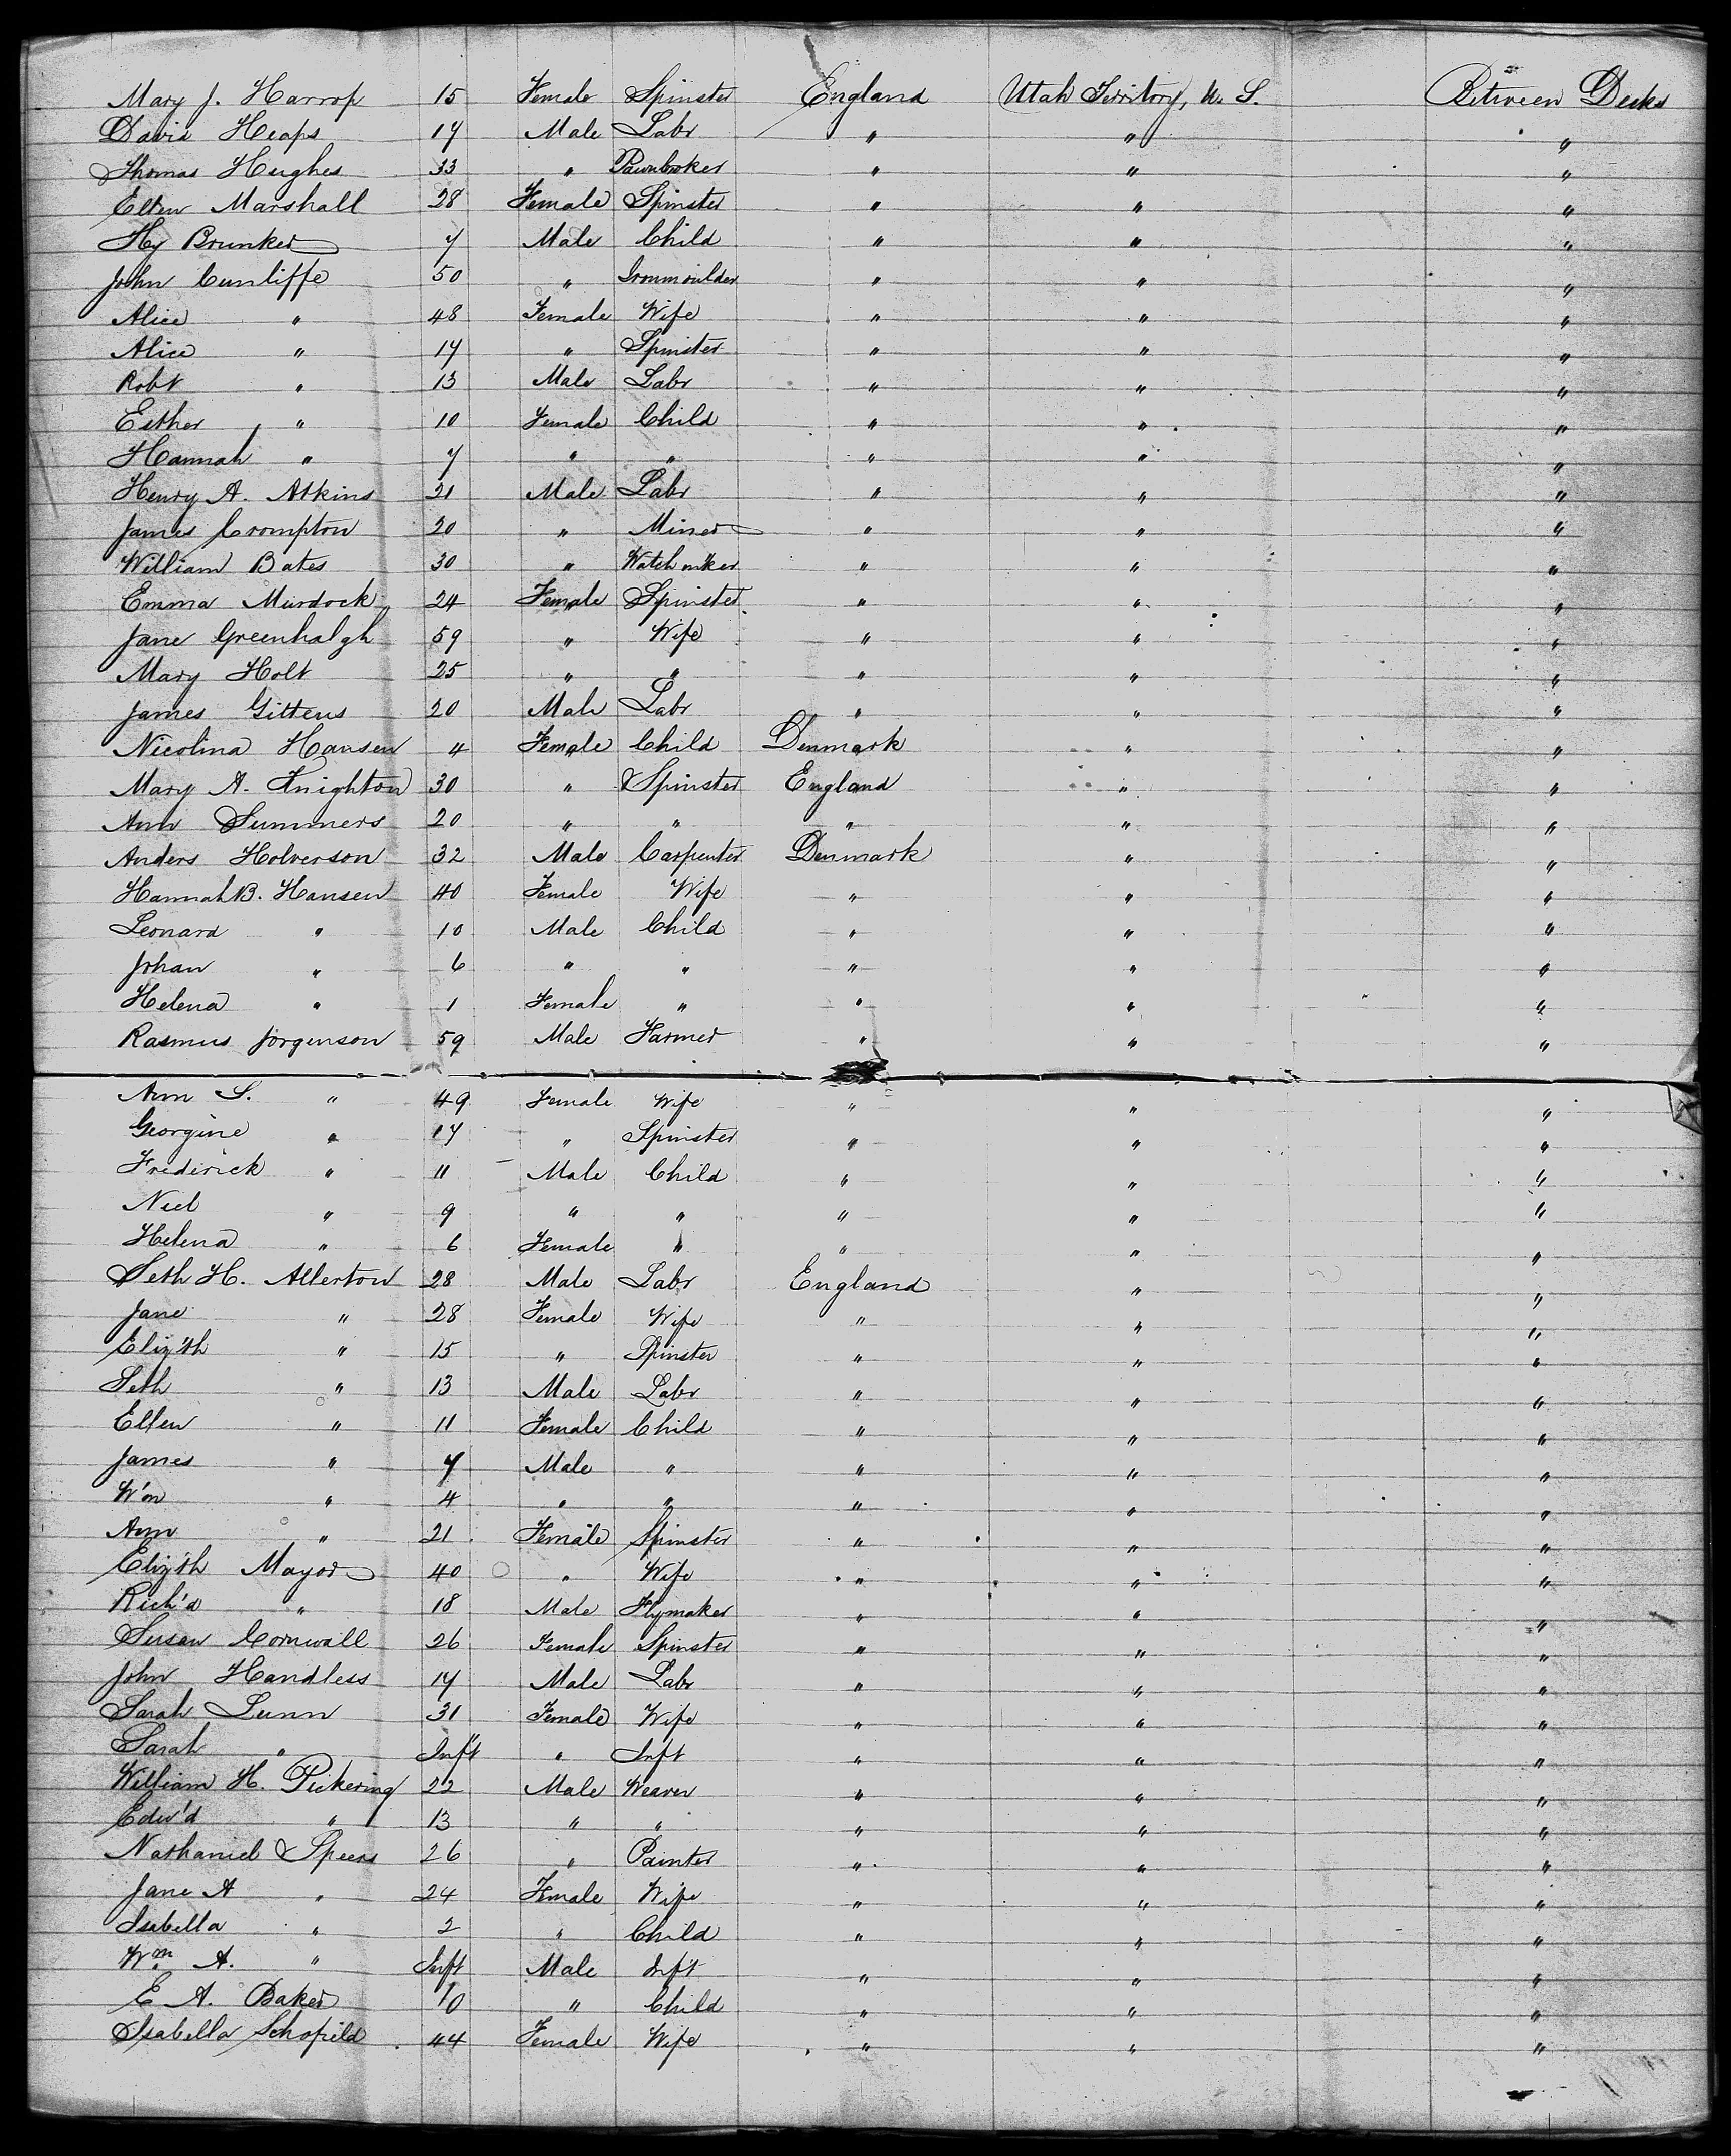 Mary J. Harrop 15 Female Spinster England Utah Territory, U. S. Between Decks
David Heaps 17 Male Labr " " "
Thomas Hughes 33 " Pawnbroker " " "
Ellen Marshall 28 Female Spinster " " "
Hy Brunker 7 Male Child " " "
John Cunliffe 50 " Ironmoulder " " "
Alice " 48 Female Wife " " "
Alice " 17 " Spinster " " "
Robt " 13 Male Labr " " "
Esther " 10 Female Child " " "
Hannah " 7 " " " " "
Henry A. Atkins 21 Male Labr " " "
James Crompton 20 " Miner " " "
William Bates 30 " Watch mker " " "
Emma Murdock 24 Female Spinster " " "
Jane Greenhalgh 59 " Wife " " "
Mary Holt 25 " " " " "
James Gittens 20 Male Labr " " "
Nicolina Hansen 4 Female Child Denmark " "
Mary A. Knighton 30 " Spinster England " "
Ann Summers 20 " " " " "
Anders Holverson 32 Male Carpenter Denmark " "
Hannah B. Hansen 40 Female Wife " " "
Leonard " 10 Male Child " " "
Johan " 6 " " " " "
Helena " 1 Female " " " "
Rasmus Jorgenson 59 Male Farmer " " "
Ann S. " 49 Female Wife " " "
Georgine " 17 " Spinster " " "
Frederick " 11 Male Child " " "
Niel " 9 " " " " "
Helena " 6 Female " " " "
Seth H. Allerton 28 Male Labr England " "
Jane " 28 Female Wife " " "
Eliz'th " 15 " Spinster " " "
Seth " 13 Male Labr " " "
Ellen " 11 Female Child " " "
James " 7 Male " " " "
W'm " 4 " " " " "
Ann " 21 Female Spinster " " "
Eliz'th Mayor 40 " Wife " " "
Rich'd " 18 Male Flymaker " " "
Susan Cornwall 26 Female Spinster " " "
John Handless 17 Male Labr " " "
Sarah Lunn 31 Female Wife " " "
Sarah " Inf't " Inft " " "
William H. Pickering 22 Male Weaver " " "
Edw'd " 13 " " " " "
Nathaniel Speers 26 " Painter " " "
Jane A " 24 Female Wife " " "
Isabella " 2 " Child " " "
Wm A. " Inft Male Inft " " "
E A. Baker 10 " Child " " "
Isabella Schofield 44 Female Wife " " "